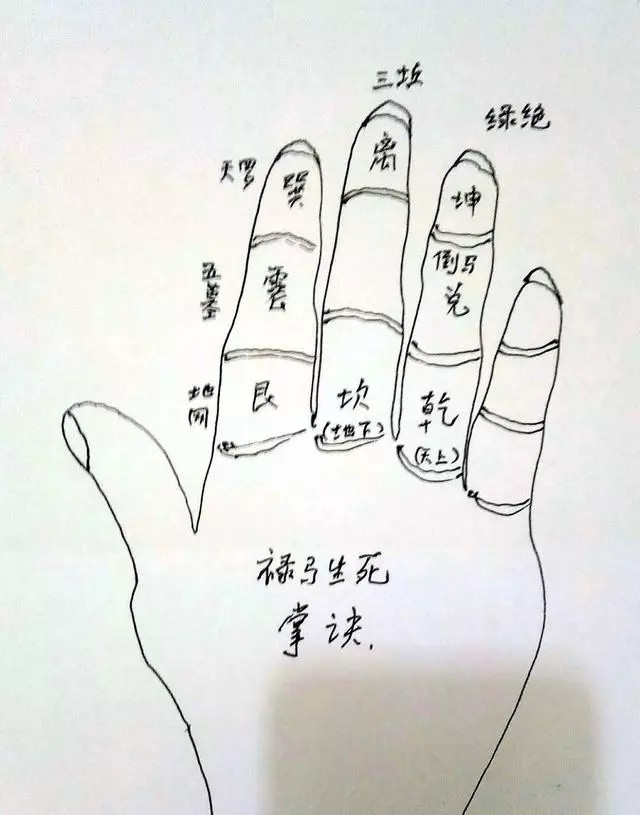 三坵
绿绝
天罗
巽
离
坤
五墓
震
倒马
兑
地网
艮
坎
(地下)
乾
(天上)
禄马生死
掌诀.